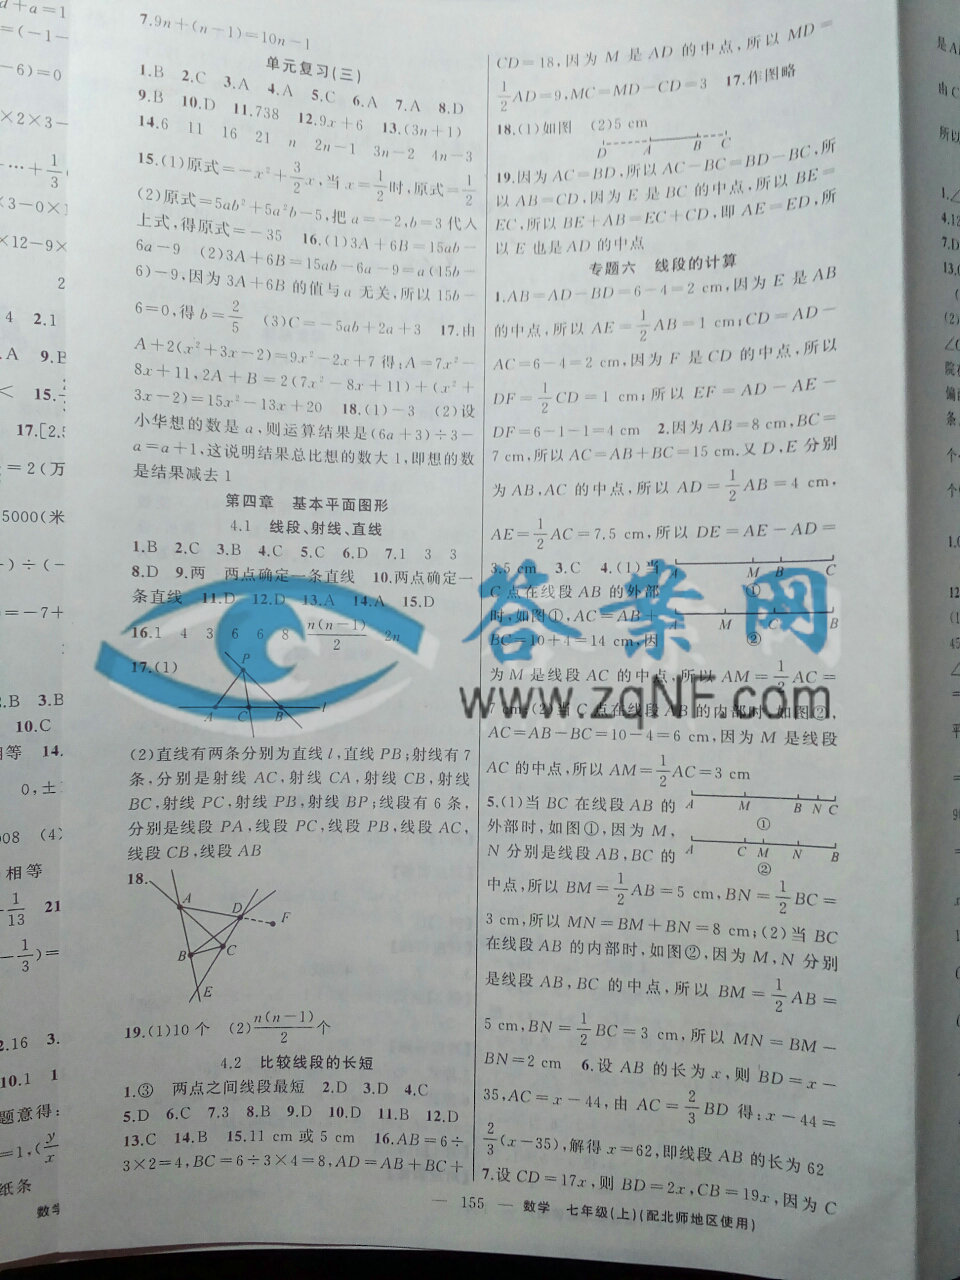 7.9n+(n-1)=10n-1
单元复习(三)
1.B 2.C 3.A 4.A 5.C 6.A 7.A 8.D
9.B 10.D 11.738 12.9x+6 13.(3n+1)
14.6 11 16 21 n 2n-1 3n-2 4n-3
15.(1)原式=-x²+3/2x,当x=1/2时,原式=1/2
(2)原式=5ab²+5a²b-5,把a=-2,b=3代入
上式,得原式=-35 16.(1)3A+6B=15ab-
6a-9 (2)3A+6B=15ab-6a-9=a(15b-
6)-9,因为3A+6B的值与a无关,所以15b-
6=0,得b=2/5 (3)C=-5ab+2a+3 17.由
A+2(x²+3x-2)=9x²-2x+7得:A=7x²-
8x+11,2A+B=2(7x²-8x+11)+(x²+
3x-2)=15x²-13x+20 18.(1)-3 (2)设
小华想的数是a,则运算结果是(6a+3)÷3-
a=a+1,这说明结果总比想的数大1,即想的数
是结果减去1
第四章 基本平面图形
4.1 线段、射线、直线
1.B 2.C 3.B 4.C 5.C 6.D 7.1 3 3
8.D 9.两 两点确定一条直线 10.两点确定一
条直线 11.D 12.D 13.A 14.A 15.D
16.1 4 3 6 6 8 n(n-1)/2 2n
17.(1)
P
A C B l
(2)直线有两条分别为直线l,直线PB;射线有7
条,分别是射线AC,射线CA,射线CB,射线
BC,射线PC,射线PB,射线BP;线段有6条,
分别是线段PA,线段PC,线段PB,线段AC,
线段CB,线段AB
18.
A D F
B C
E
19.(1)10个 (2)n(n-1)/2个
4.2 比较线段的长短
1.③ 两点之间线段最短 2.D 3.D 4.C
5.D 6.C 7.3 8.B 9.D 10.D 11.B 12.D
13.C 14.B 15.11 cm或5 cm 16.AB=6÷
3×2=4,BC=6÷3×4=8,AD=AB+BC+
CD=18,因为M是AD的中点,所以MD=
1/2AD=9,MC=MD-CD=3 17.作图略
18.(1)如图 (2)5 cm
D A B C
19.因为AC=BD,所以AC-BC=BD-BC,所
以AB=CD,因为E是BC的中点,所以BE=
EC,所以BE+AB=EC+CD,即AE=ED,所
以E也是AD的中点
专题六 线段的计算
1.AB=AD-BD=6-4=2 cm,因为E是AB
的中点,所以AE=1/2AB=1 cm;CD=AD-
AC=6-4=2 cm,因为F是CD的中点,所以
DF=1/2CD=1 cm;所以EF=AD-AE-
DF=6-1-1=4 cm 2.因为AB=8 cm,BC=
7 cm,所以AC=AB+BC=15 cm.又D,E分别
为AB,AC的中点,所以AD=1/2AB=4 cm,
AE=1/2AC=7.5 cm,所以DE=AE-AD=
3.5 cm 3.C 4.(1)当
A M B C
①
C点在线段AB的外部
时,如图①,AC=AB+
M C B
②
BC=10+4=14 cm,因
为M是线段AC的中点,所以AM=1/2AC=
7 cm;(2)当C点在线段AB的内部时,如图②,
AC=AB-BC=10-4=6 cm,因为M是线段
AC的中点,所以AM=1/2AC=3 cm
5.(1)当BC在线段AB的
A M B N C
①
外部时,如图①,因为M,
N分别是线段AB,BC的
A C M N B
②
中点,所以BM=1/2AB=5 cm,BN=1/2BC=
3 cm,所以MN=BM+BN=8 cm;(2)当BC
在线段AB的内部时,如图②,因为M,N分别
是线段AB,BC的中点,所以BM=1/2AB=
5 cm,BN=1/2BC=3 cm,所以MN=BM-
BN=2 cm 6.设AB的长为x,则BD=x-
35,AC=x-44,由AC=2/3BD得:x-44=
2/3(x-35),解得x=62,即线段AB的长为62
7.设CD=17x,则BD=2x,CB=19x,因为C
— 155 — 数学 七年级(上)(配北师地区使用)
答案网
www.zqNF.com